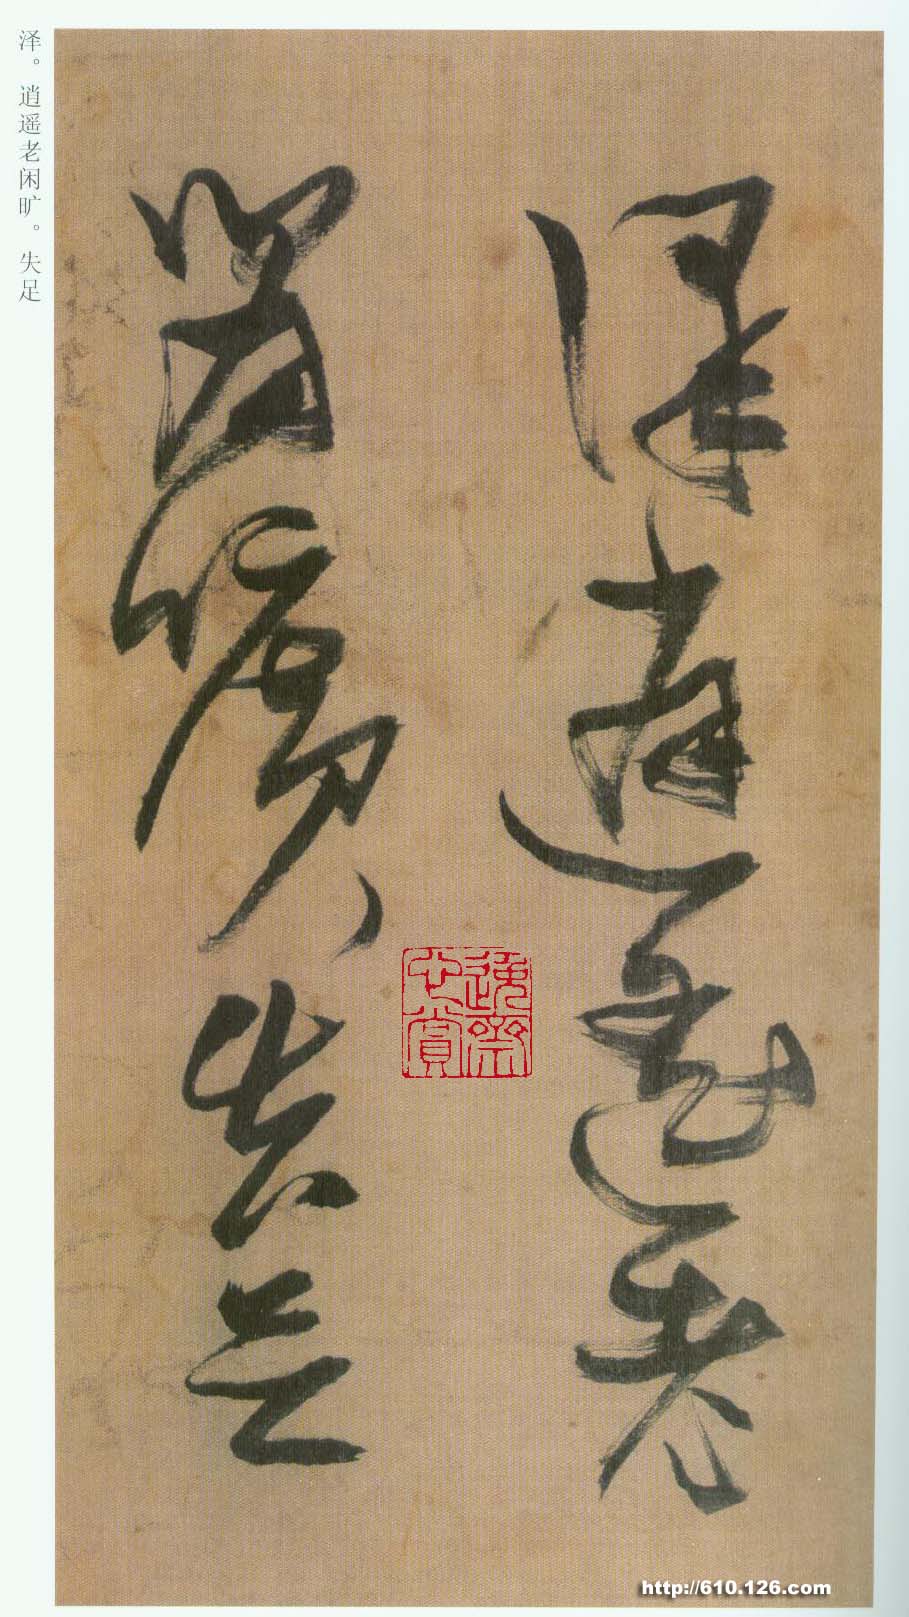 澤逍遙老
閒曠失足
泽。逍遥老闲旷。失足
http://610.126.com